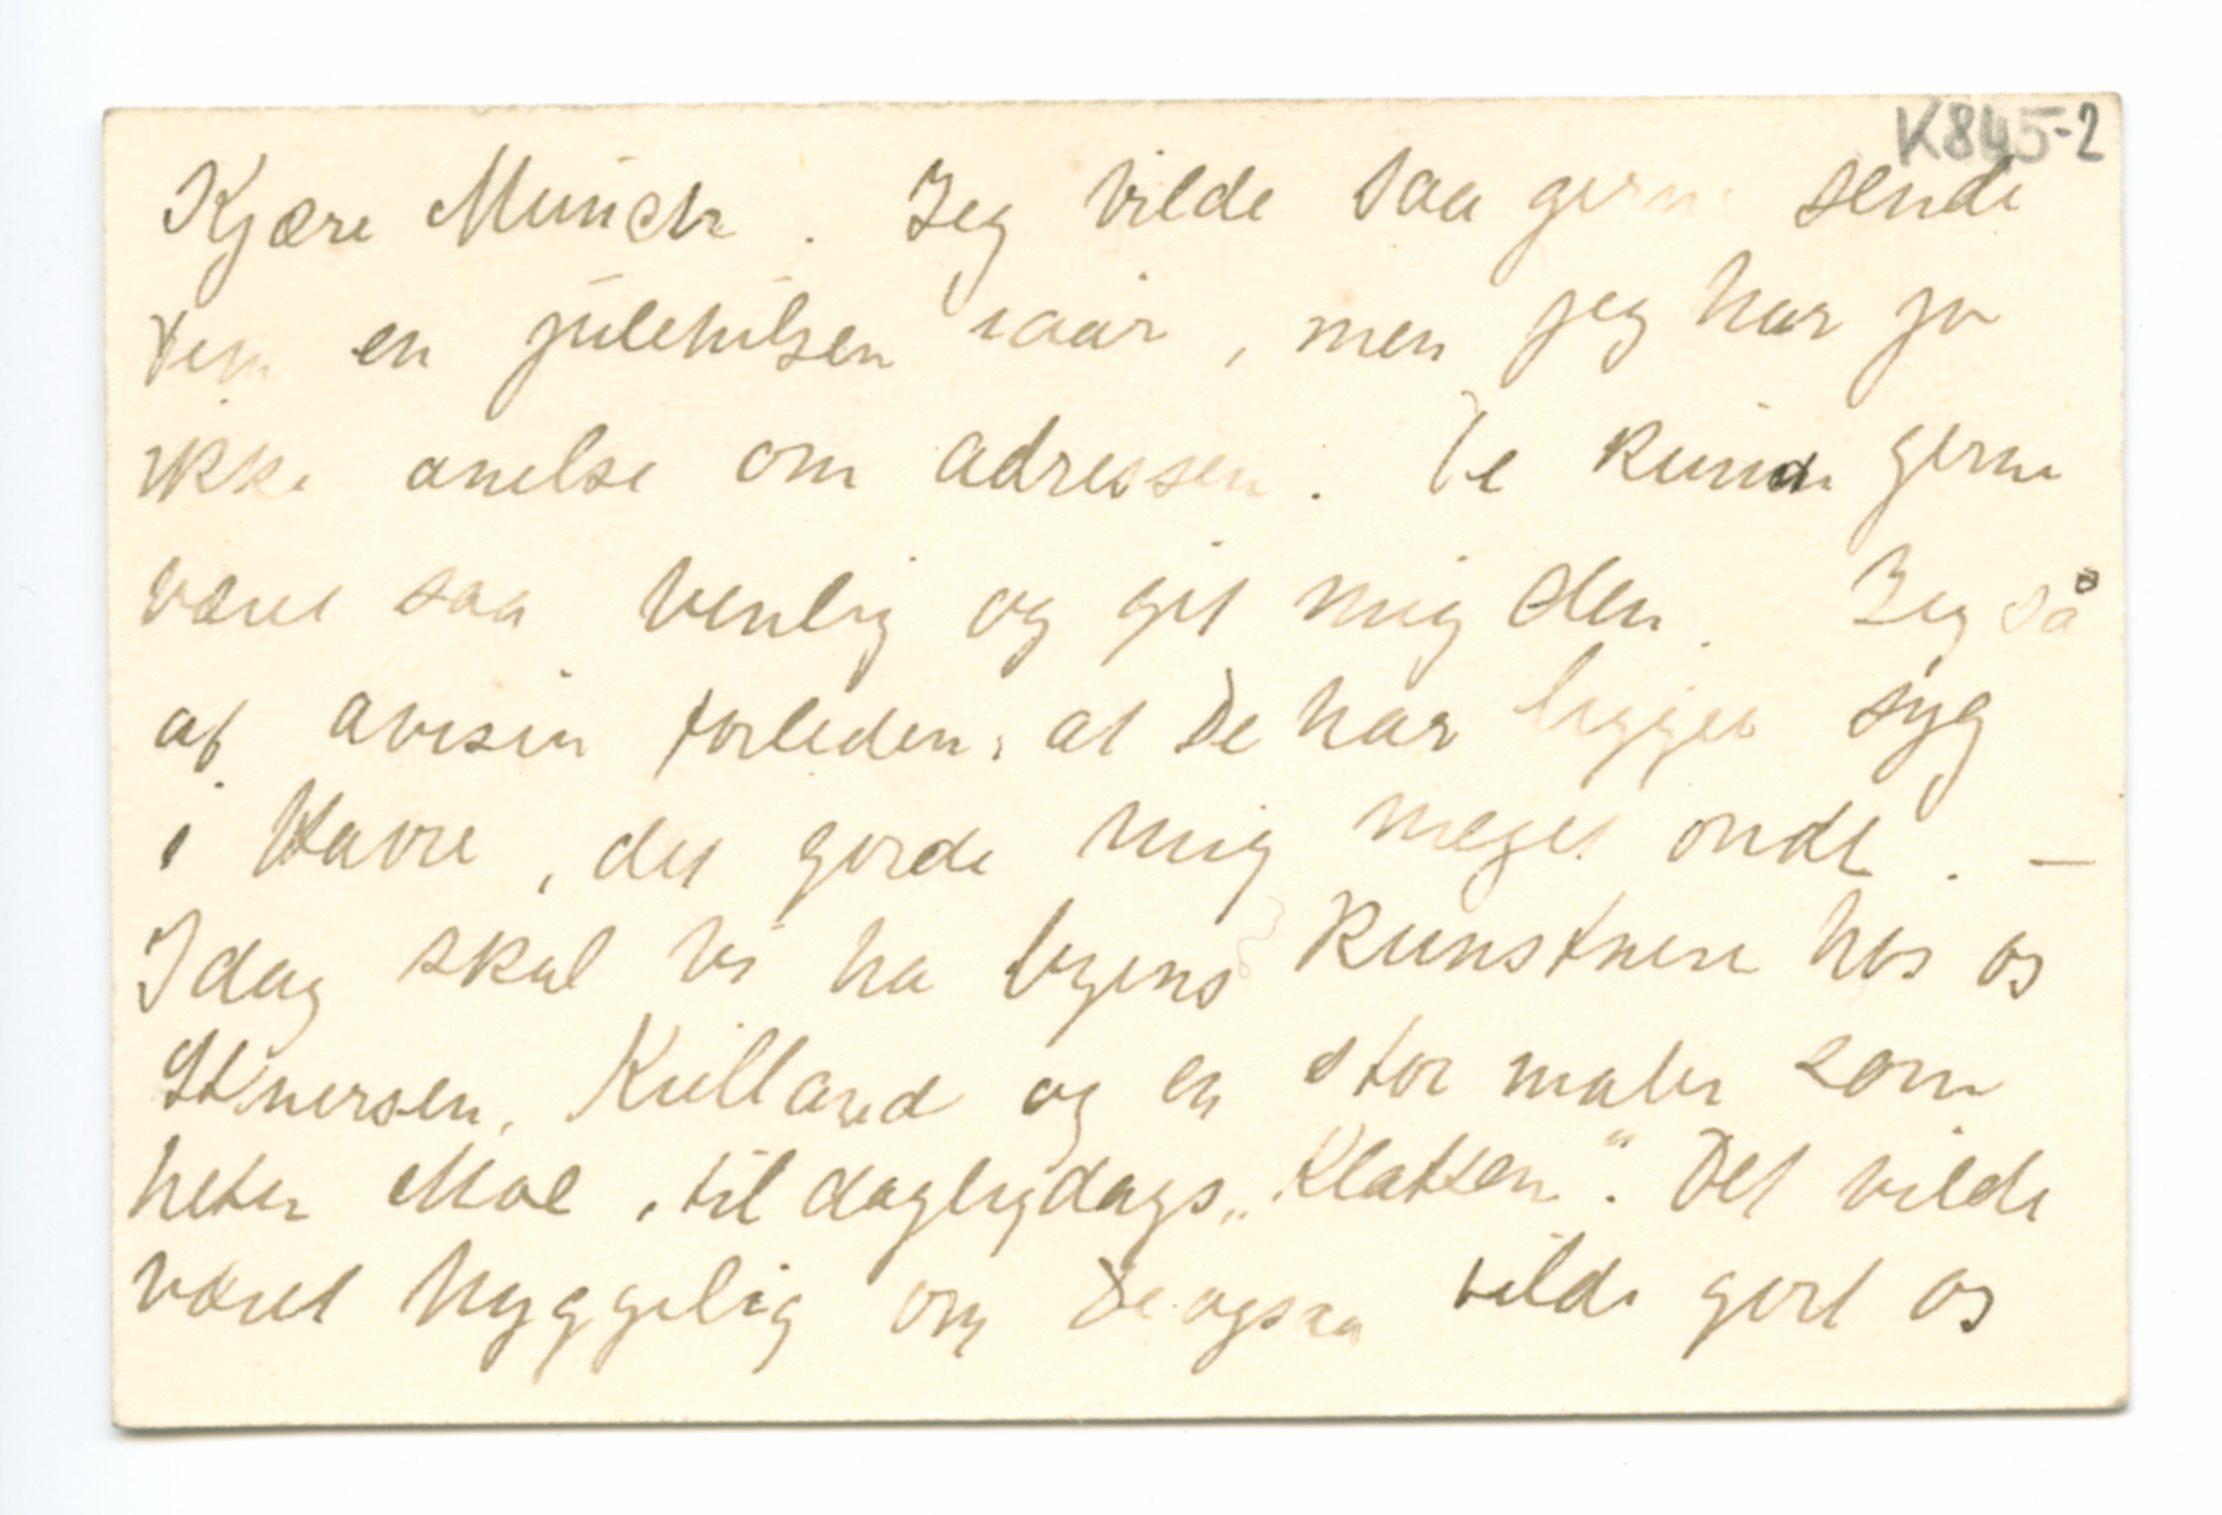 K845-2
Kjære Munch. Jeg vilde saa gerne sende
Dem en julehilsen iaar, men jeg har jo
ikke anelse om adressen. De kunde gerne
været saa venlig og git mig den. Jeg så
af avisen forleden, at De har ligget syg
i Havre, det gorde mig meget ondt. —
Idag skal vi ha byens kunstnere hos os
Kielland og en stor maler som
heter Moe, til dagligdags „Klatten". Det vilde
været hyggelig om De ogsaa vilde gort os